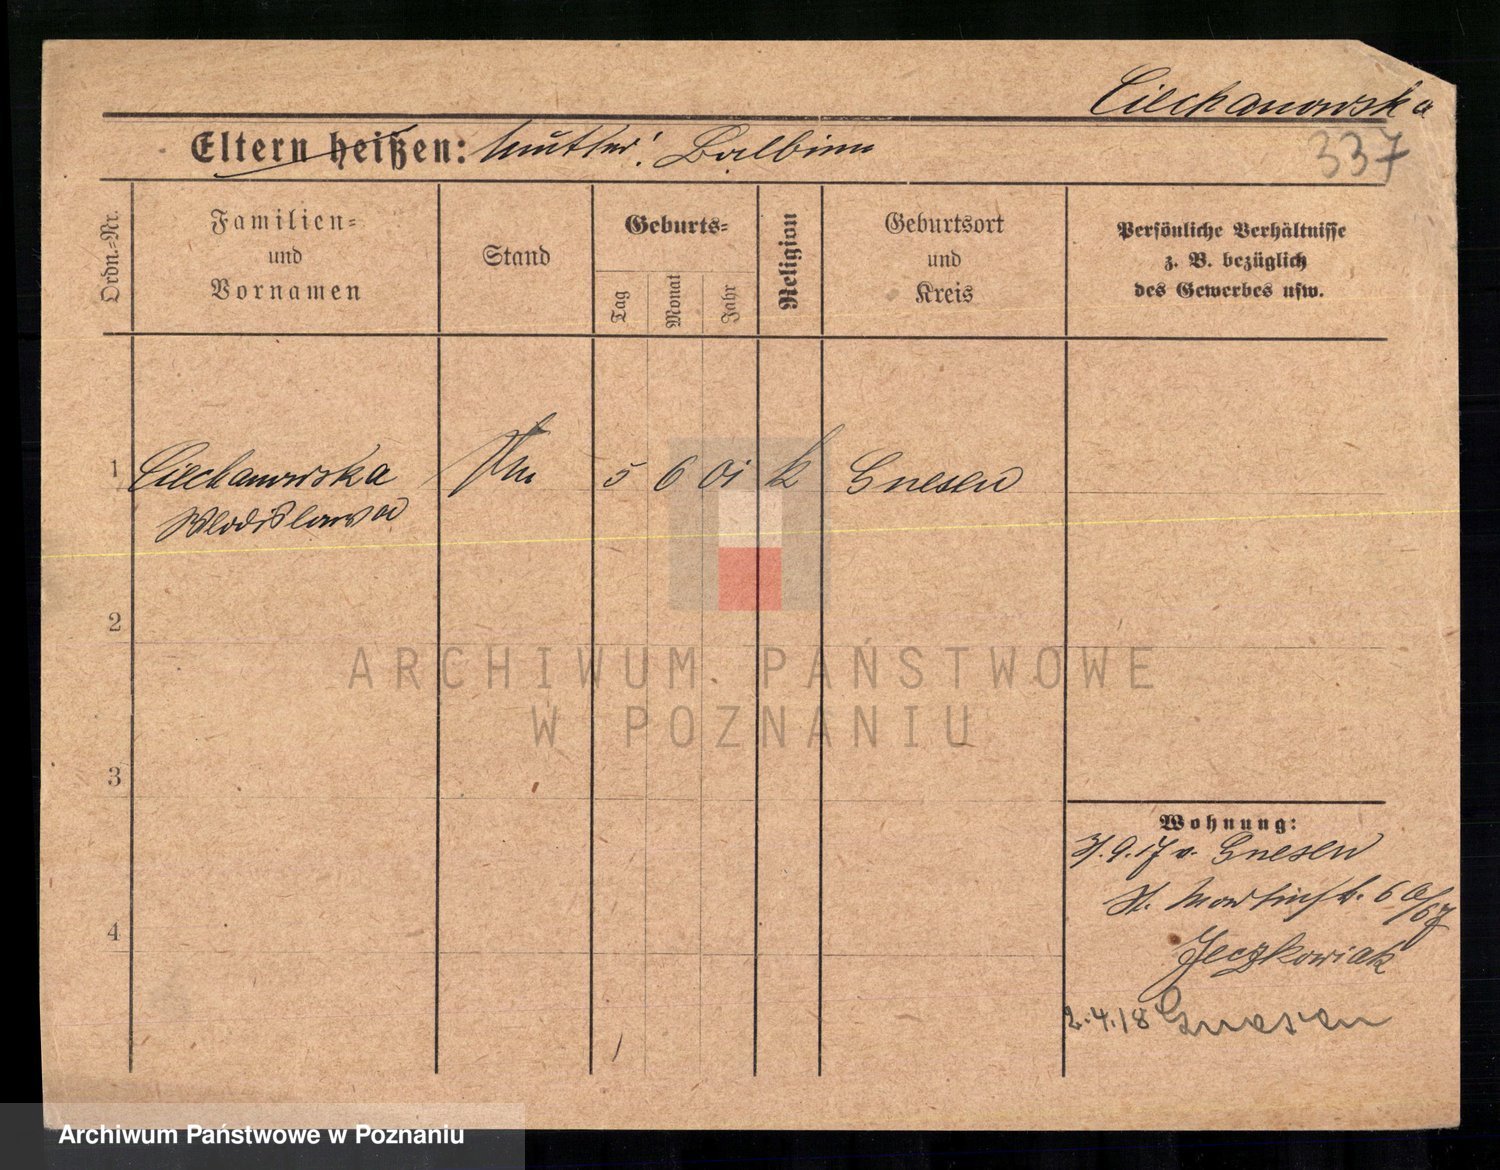 Ciechanowska
337
Eltern heißen: Mutter: Balbina
Ordn.=Nr.
Familien=
und
Vornamen
Stand
Geburts=
Tag
Monat
Jahr
Religion
Geburtsort
und
Kreis
Persönliche Verhältnisse
z. B. bezüglich
des Gewerbes usw.
1 Ciechanowska 5 6 01 k Gnesen
Wlodislawa
2
3
4
Wohnung:
9.17 v. Gnesen
St. Martinstr. 60/67
Jeczkowiak
2.4.18 Gnesen
ARCHIWUM PAŃSTWOWE
W POZNANIU
Archiwum Państwowe w Poznaniu